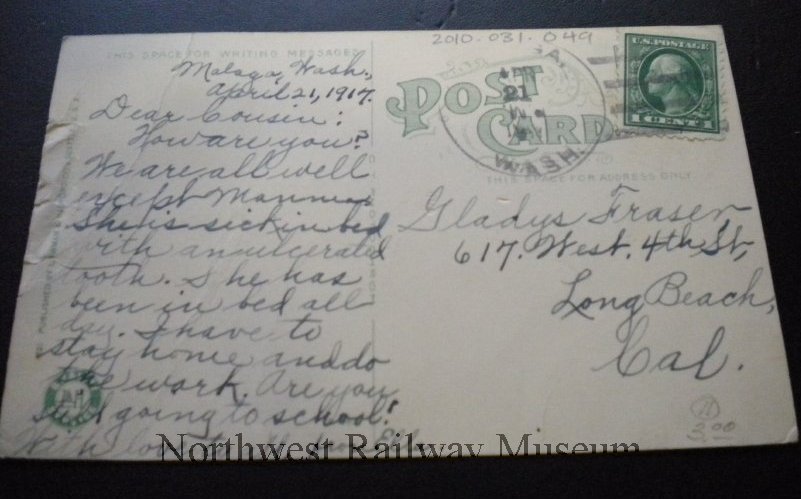 2010.031.049
THIS SPACE FOR WRITING MESSAGES
Malaga, Wash.,
April 21, 1917.
Dear Cousin:
How are you?
We are all well
except Mamma
She is sick in bed
with an ulcerated
tooth. She has
been in bed all
day. I have to
stay home and do
the work. Are you
still going to school?
With love to
POST CARD
THIS SPACE FOR ADDRESS ONLY
21
WASH.
U.S. POSTAGE
1 CENT 1
Gladys Fraser,
617. West. 4th St,
Long Beach,
Cal.
3.00
Northwest Railway Museum